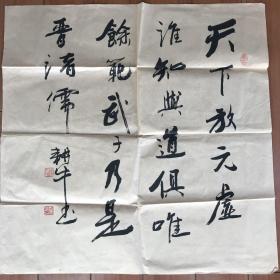 天下放元虚
谁知與道俱唯
餘範武子乃是
晋清儒
耕牛书